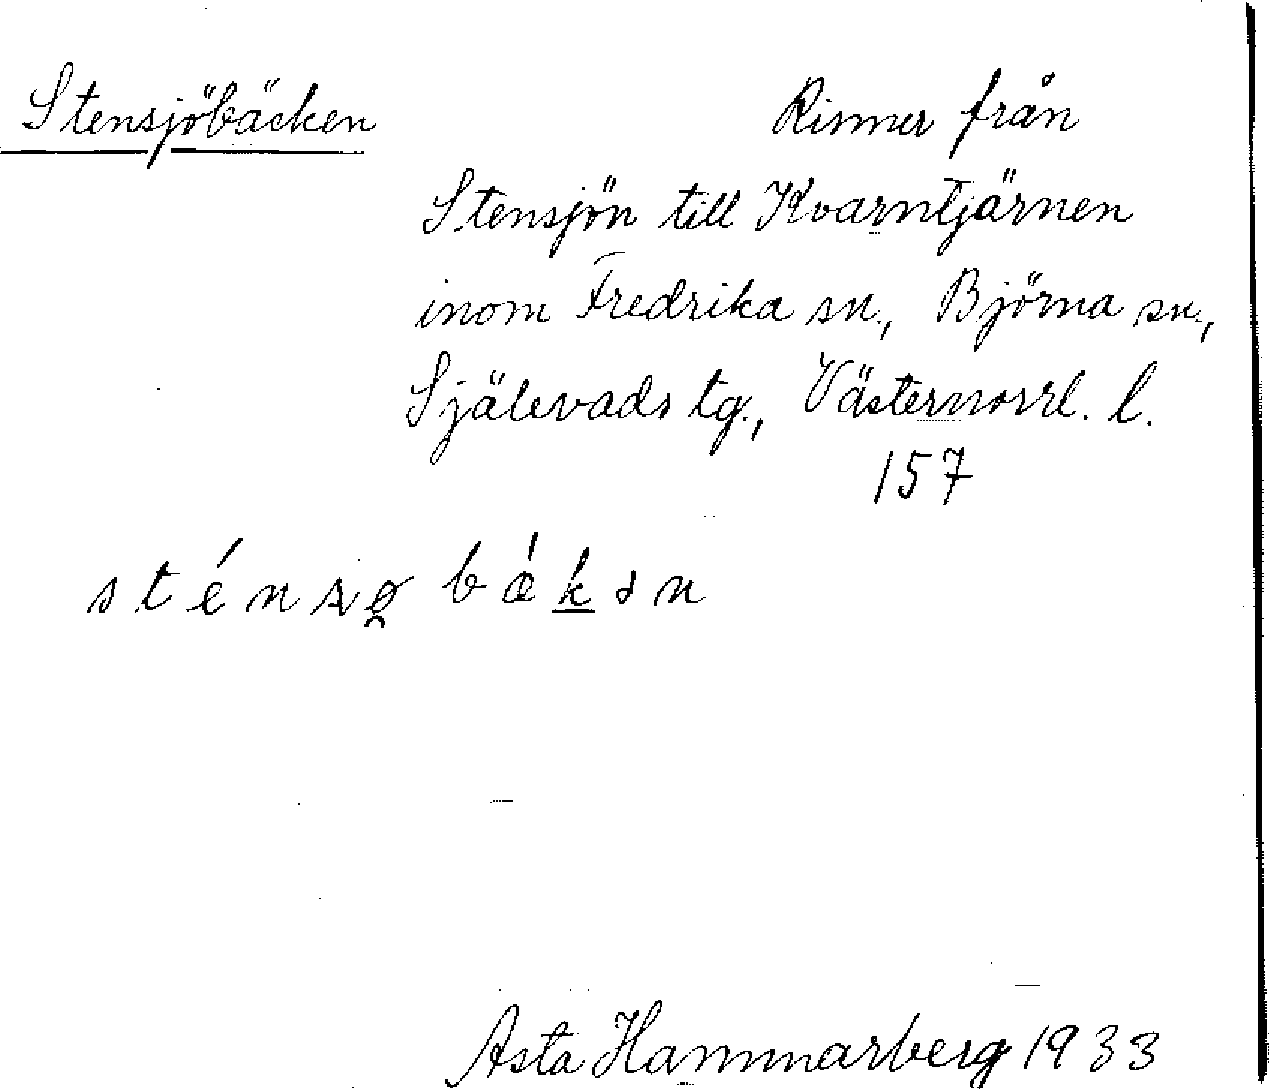 Stensjöbäcken Rinner från
Stensjön till Kvarntjärnen
inom Fredrika sn., Björna sn.,
Själevads tg., Västernorrl. l.
157
Asta Hammarberg 1933